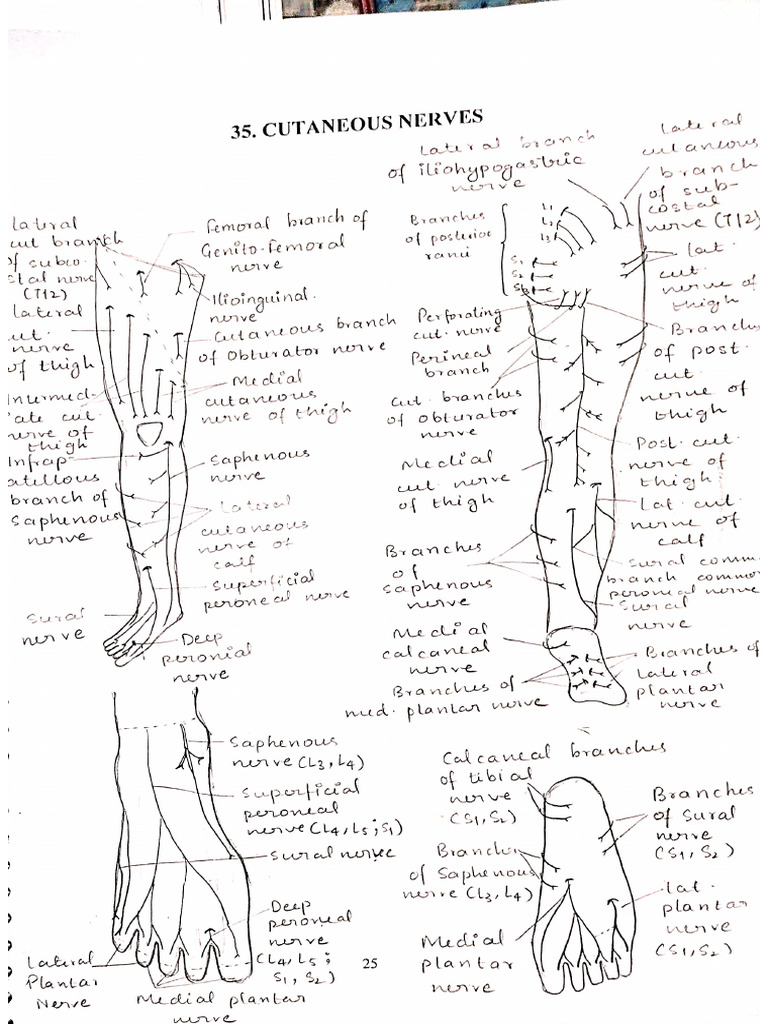 35. CUTANEOUS NERVES
lateral
cut branch
of subco
stal nerve
(T12)
lateral
cut.
nerve
of thigh
Intermed-
iate cut.
nerve of
thigh
Infrap-
atillous
branch of
Saphenous
nerve
Sural
nerve
Femoral branch of
Genito-femoral
nerve
Ilioinguinal.
nerve
Cutaneous branch
of Obturator nerve
Medial
cutaneous
nerve of thigh
Saphenous
nerve
Lateral
cutaneous
nerve of
calf
Superficial
peroneal nerve
Deep
peronial
nerve
Lateral branch
of iliohypogastric
nerve
Branches
of posterior
rami
L1
L2
L3
S1
S2
S3
Perforating
cut. nerve
Perineal
branch
cut. branches
of Obturator
nerve
Medial
cut. nerve
of thigh
Branches
of
saphenous
nerve
Medial
calcaneal
nerve
Branches of
med. plantar nerve
Lateral
cutaneous
branch
of sub-
costal
nerve (T12)
lat.
cut.
nerve of
thigh
Branches
of post.
cut.
nerve of
thigh
Post. cut.
nerve of
thigh
Lat. cut.
nerve of
calf
Sural comm.
branch common
peroneal nerve
Sural
nerve
Branches of
lateral
plantar
nerve
Saphenous
nerve (L3, L4)
Superficial
peroneal
nerve (L4, L5; S1)
Sural nerve
Deep
peroneal
nerve
(L4, L5;
S1, S2)
Lateral
Plantar
Nerve
Medial plantar
nerve
25
Calcaneal branches
of tibial
nerve
(S1, S2)
Branches
of Saphenous
nerve (L3, L4)
Medial
plantar
nerve
Branches
of Sural
nerve
(S1, S2)
lat.
plantar
nerve
(S1, S2)